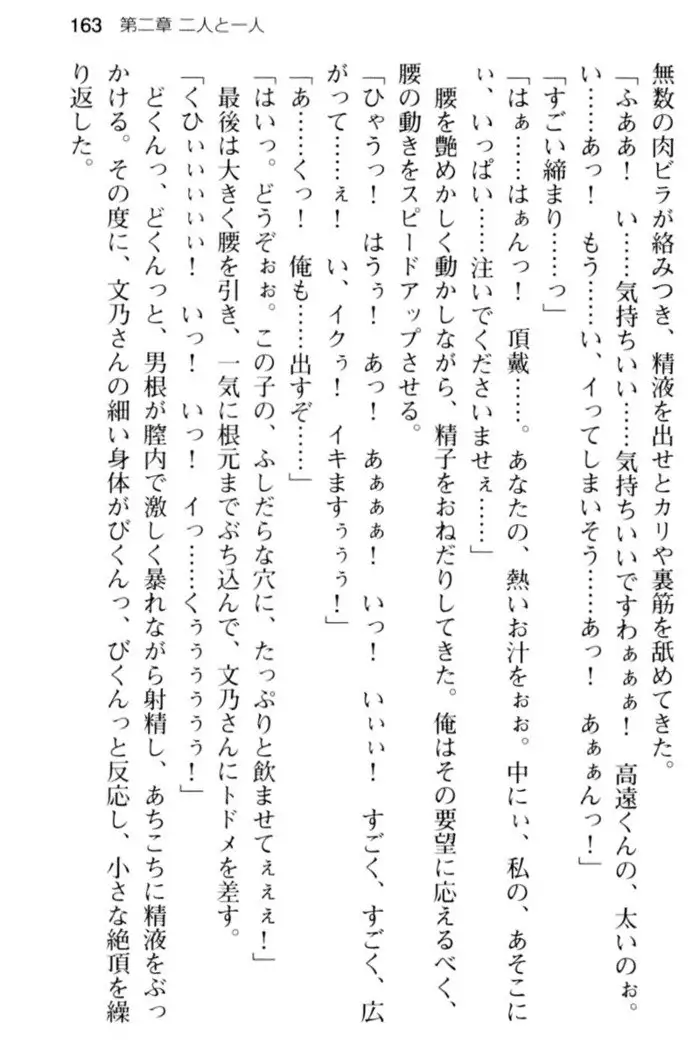 163 第二章 二人と一人
無数の肉ビラが絡みつき、精液を出せとカリや裏筋を舐めてきた。
「ふああ! い……気持ちいい……気持ちいいですわぁぁぁ! 高遠くんの、太いのぉ。
い……あっ! もう……い、イってしまいそう……あっ! あぁぁんっ!」
「すごい締まり……っ」
「はぁ……はぁんっ! 頂戴……。あなたの、熱いお汁をぉぉ。中にぃ、私の、あそこに
ぃ、いっぱい……注いでくださいませぇ……」
腰を艶めかしく動かしながら、精子をおねだりしてきた。俺はその要望に応えるべく、
腰の動きをスピードアップさせる。
「ひゃうっ! はうぅ! あっ! あぁぁぁ! いっ! いぃぃ! すごく、すごく、広
がって……ぇ! い、イクぅ! イキますぅぅぅ!」
「あ……くっ! 俺も……出すぞ……」
「はいっ。どうぞぉぉ。この子の、ふしだらな穴に、たっぷりと飲ませてぇぇぇ!」
最後は大きく腰を引き、一気に根元までぶち込んで、文乃さんにトドメを差す。
「くひぃぃぃぃぃ! いっ! いっ! イっ……くぅぅぅぅぅぅ!」
どくんっ、どくんっと、男根が膣内で激しく暴れながら射精し、あちこちに精液をぶっ
かける。その度に、文乃さんの細い身体がびくんっ、びくんっと反応し、小さな絶頂を繰
り返した。